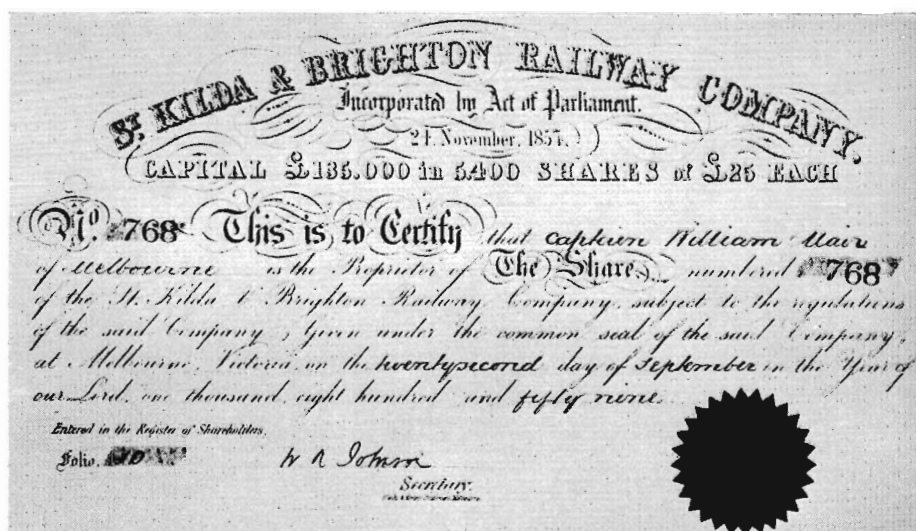 ST. KILDA & BRIGHTON RAILWAY COMPANY.
Incorporated by Act of Parliament.
24 November, 1857.
CAPITAL £135.000 in 5.400 SHARES of £25 EACH
No. 768 This is to Certify that Captain William Mair
of Melbourne is the Proprietor of The Share numbered 768
of the St. Kilda & Brighton Railway Company, subject to the regulations
of the said Company, Given under the common seal of the said Company,
at Melbourne, Victoria, on the twentysecond day of September in the Year of
our Lord, one thousand, eight hundred and fifty nine.
Entered in the Register of Shareholders,
Folio.
Secretary.